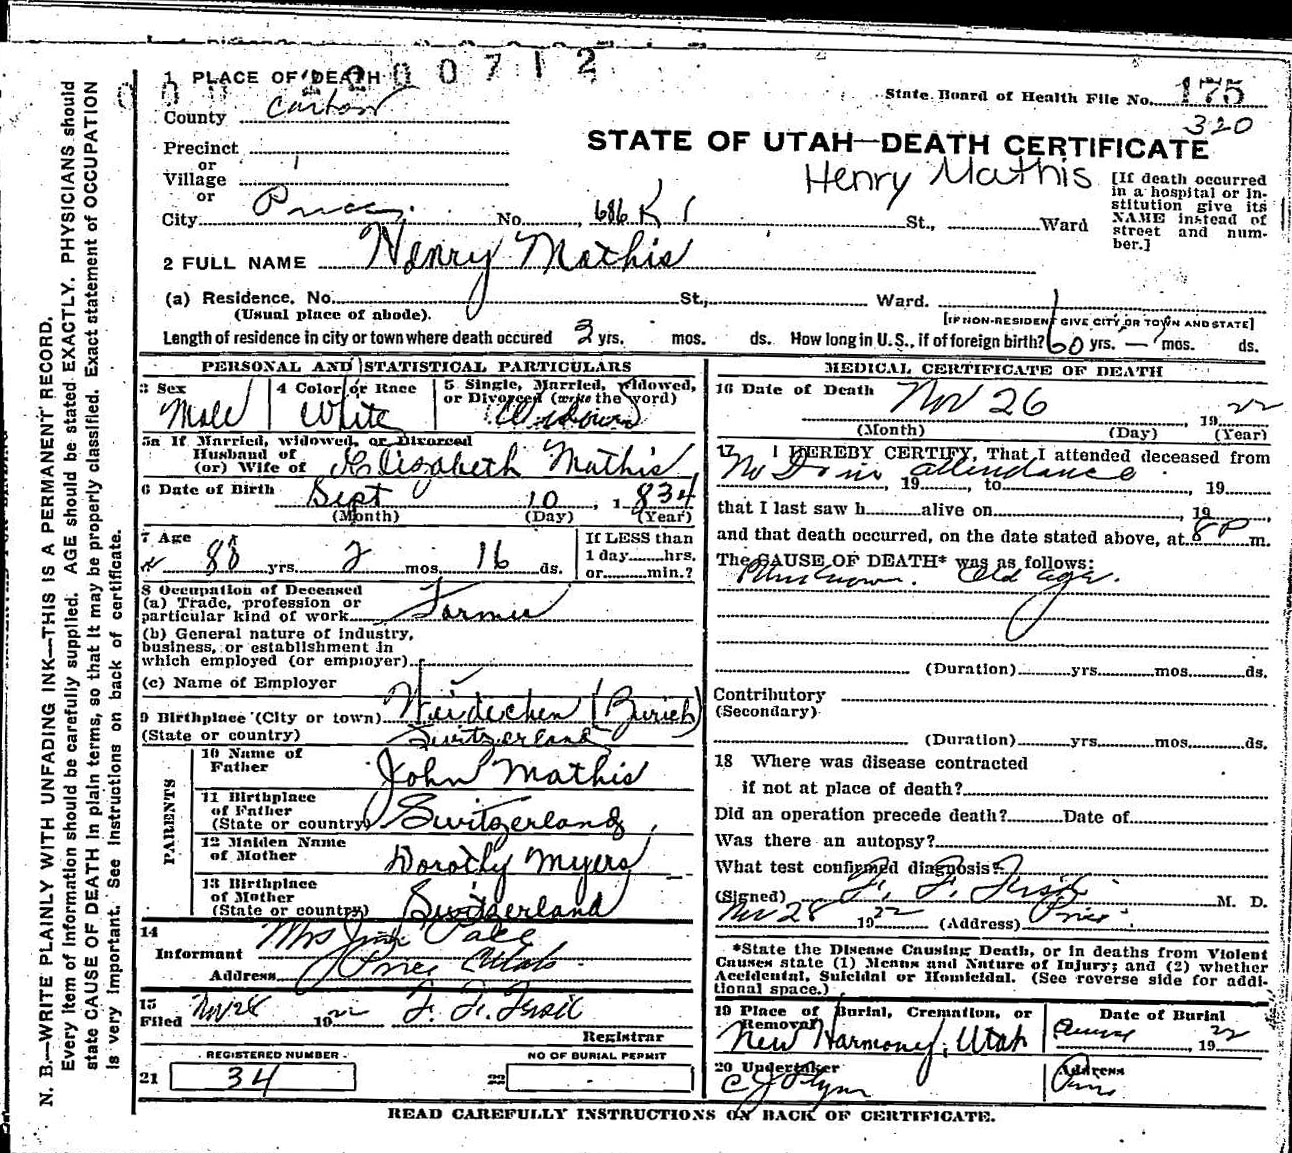 000712
1 PLACE OF DEATH
County Carbon
State Board of Health File No. 175
320
Precinct
or
Village
or
City Price No. 686 K 1 St., Ward
STATE OF UTAH—DEATH CERTIFICATE
Henry Mathis
[If death occurred
in a hospital or in-
stitution give its
NAME instead of
street and num-
ber.]
2 FULL NAME Henry Mathis
(a) Residence. No. St., Ward.
(Usual place of abode).
[IF NON-RESIDENT GIVE CITY OR TOWN AND STATE]
Length of residence in city or town where death occured 3 yrs. mos. ds. How long in U.S., if of foreign birth? 60 yrs. — mos. ds.
PERSONAL AND STATISTICAL PARTICULARS
3 Sex Male
4 Color or Race White
5 Single, Married, Widowed,
or Divorced (write the word)
Widower
5a If Married, widowed, or Divorced
Husband of
(or) Wife of Elizabeth Mathis
6 Date of Birth Sept 10, 1834
(Month) (Day) (Year)
7 Age 88 yrs. 2 mos. 16 ds.
If LESS than
1 day hrs.
or min.?
8 Occupation of Deceased
(a) Trade, profession or
particular kind of work Farmer
(b) General nature of industry,
business, or establishment in
which employed (or employer)
(c) Name of Employer
9 Birthplace (City or town) (Zurich)
(State or country) Switzerland
PARENTS
10 Name of
Father John Mathis
11 Birthplace
of Father
(State or country) Switzerland
12 Maiden Name
of Mother Dorothy Myers
13 Birthplace
of Mother
(State or country) Switzerland
14
Informant Mrs Jim Pace
Address Price Utah
15
Filed Nov 28 1922 F. F.
Registrar
REGISTERED NUMBER
21 34
NO OF BURIAL PERMIT
22
MEDICAL CERTIFICATE OF DEATH
16 Date of Death Nov 26, 1922
(Month) (Day) (Year)
17 I HEREBY CERTIFY, That I attended deceased from
No Dr in attendance
, 19 , to , 19
that I last saw h alive on , 19 ,
and that death occurred, on the date stated above, at 8 P m.
The CAUSE OF DEATH* was as follows:
Unknown. Old age.
(Duration) yrs. mos. ds.
Contributory
(Secondary)
(Duration) yrs. mos. ds.
18 Where was disease contracted
if not at place of death?
Did an operation precede death? Date of
Was there an autopsy?
What test confirmed diagnosis?
(Signed) F. F. M. D.
Nov 28 1922 (Address) Price
*State the Disease Causing Death, or in deaths from Violent
Causes state (1) Means and Nature of Injury; and (2) whether
Accidental, Suicidal or Homicidal. (See reverse side for addi-
tional space.)
19 Place of Burial, Cremation, or
Removal
New Harmony, Utah
Date of Burial
, 1922
20 Undertaker
C J Flynn
Address
Price
READ CAREFULLY INSTRUCTIONS ON BACK OF CERTIFICATE.
N. B.—WRITE PLAINLY WITH UNFADING INK—THIS IS A PERMANENT RECORD.
Every item of information should be carefully supplied. AGE should be stated EXACTLY. PHYSICIANS should
state CAUSE OF DEATH in plain terms, so that it may be properly classified. Exact statement of OCCUPATION
is very important. See instructions on back of certificate.